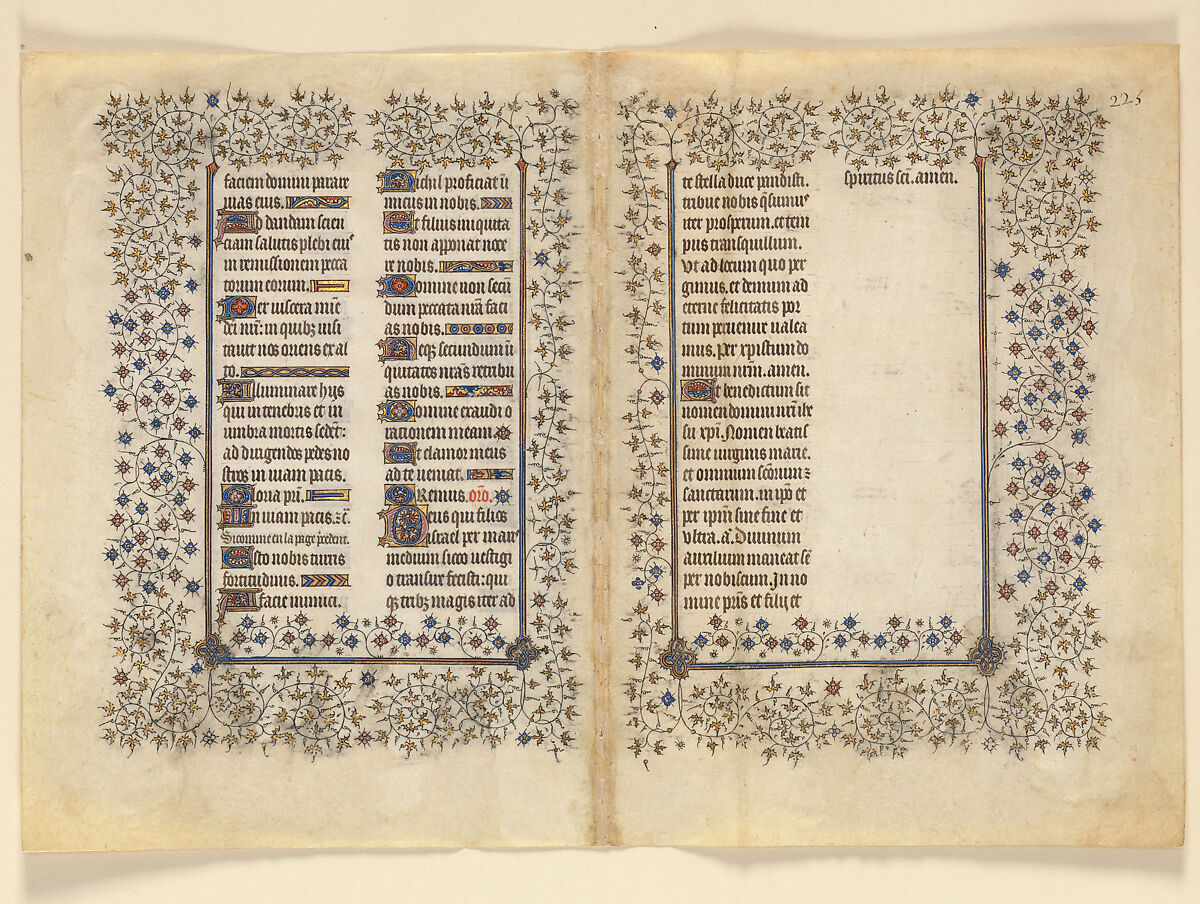 faciem domini parare
uias eius.
Ad dandam scien
ciam salutis plebi eiꝰ
in remissionem pecca
torum eorum.
Per uiscera mīe
dei nr̄i: in quibꝫ uisi
tauit nos oriens ex al
to.
Illuminare hijs
qui in tenebris et in
umbra mortis sedēt:
ad dirigendos pedes no
stros in uiam pacis.
Gloria pr̄i.
In uiam pacis. ⁊c̄.
Si comme en la page p̄cedent.
Esto nobis turris
fortitudinis.
A facie inimici.
Nichil proficiat ī
micus in nobis.
Et filius iniquita
tis non apponat noce
re nobis.
Domine non secū
dum peccata nr̄a faci
as nobis.
Neqꝫ secundum ī
quitates nr̄as retribu
as nobis.
Domine exaudi o
rationem meam
Et clamor meus
ad te ueniat.
ORemus. orō.
Deus qui filios
israel per mar
medium sicco uestigi
o transire fecisti: qui
qꝫ tribꝫ magis iter ad
te stella duce pandisti.
tribue nobis q̄sumꝰ
iter prosperum. et tem
pus tranquillum.
Vt ad locum quo per
gimus. et demum ad
eterne felicitatis por
tum peruenire ualea
mus. Per xpistum do
minum nr̄m. amen.
Et benedictum sit
nomen domini nr̄i ihe
su xp̄i. Nomen beatis
sime uirginis marie.
et omnium scōrum ⁊
sanctarum. in ip̄o et
per ip̄m sine fine et
ultra. a͞. Diuinum
auxilium maneat sē
per nobiscum. In no
mine pr̄is et filij et
225
spiritus sc̄i. amen.